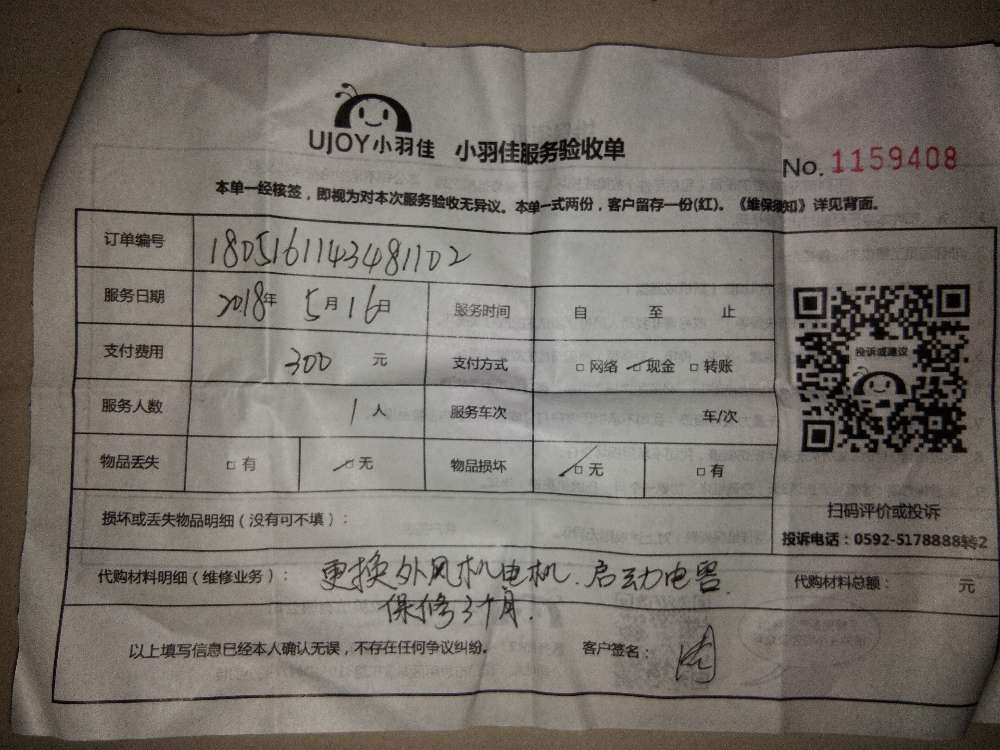 UJOY小羽佳 小羽佳服务验收单
No. 1159408
本单一经核签，即视为对本次服务验收无异议。本单一式两份，客户留存一份(红)。《维保须知》详见背面。
订单编号 1805161143481102
服务日期 2018年 5月16日 服务时间 自 至 止
支付费用 300 元 支付方式 □网络 □现金 □转账
服务人数 1人 服务车次 车/次
物品丢失 □有 □无 物品损坏 □无 □有
投诉或建议
扫码评价或投诉
投诉电话：0592-5178888转2
损坏或丢失物品明细（没有可不填）：
代购材料明细（维修业务）： 更换外风机电机.启动电容 代购材料总额： 元
保修3个月.
以上填写信息已经本人确认无误，不存在任何争议纠纷。 客户签名：